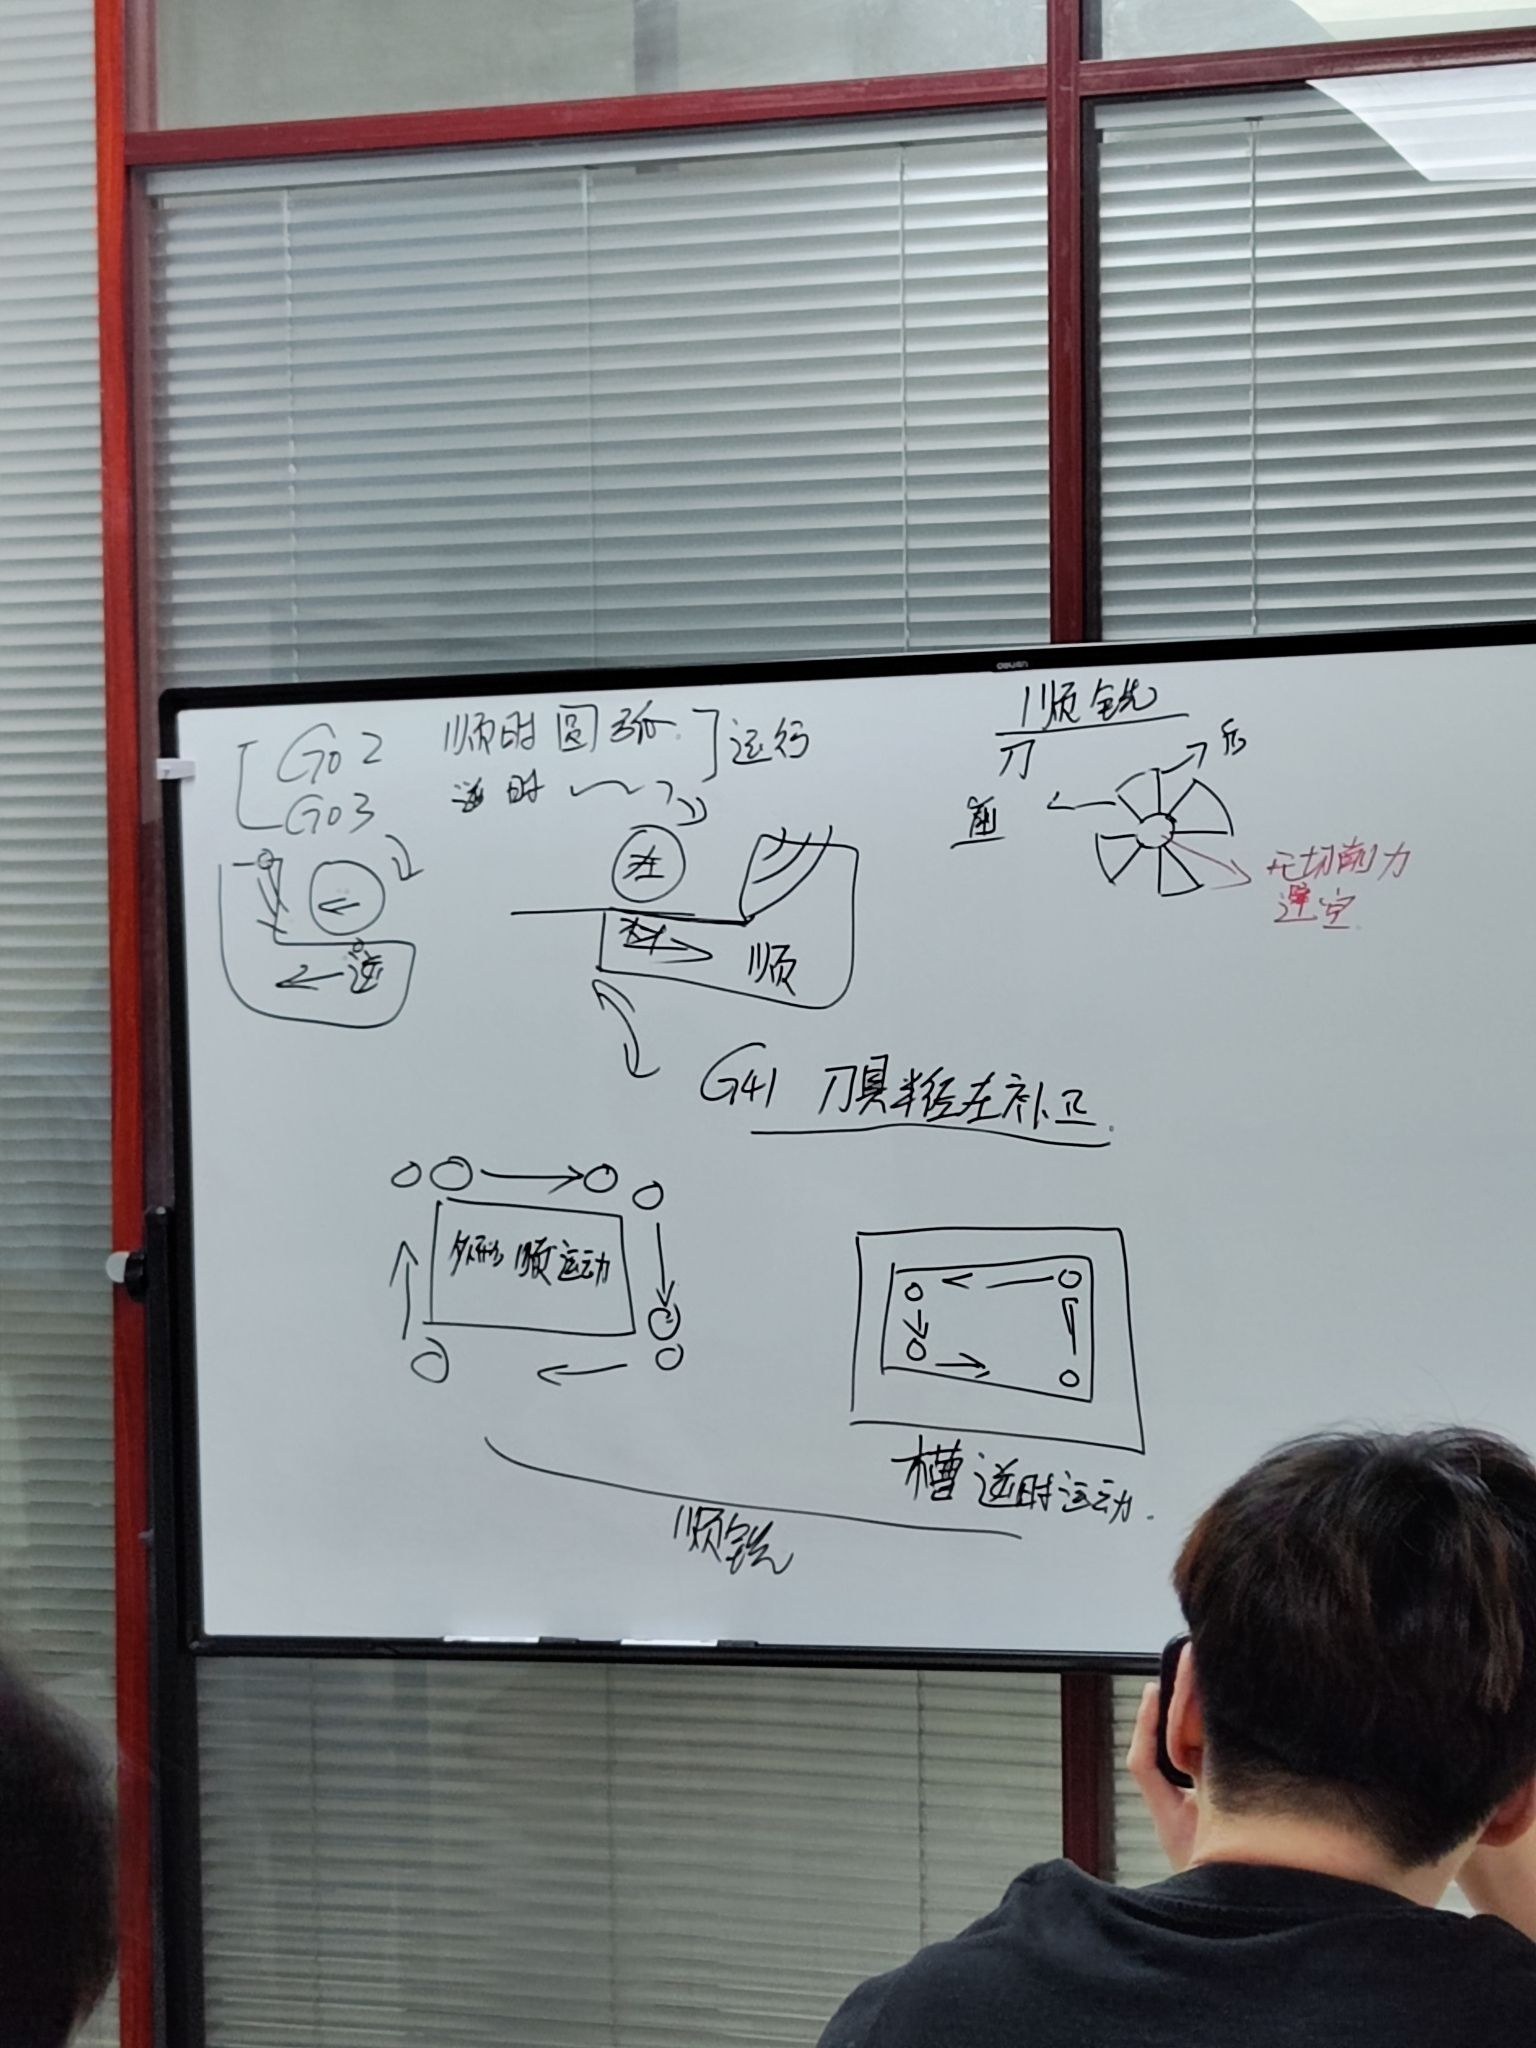 deli
G02 顺时圆弧
G03 逆时
运行
顺铣
刀
后
前
无切削力
避空
左
顺
逆
G41 刀具半径左补正.
外形 顺 运动
槽 逆时运动.
顺铣